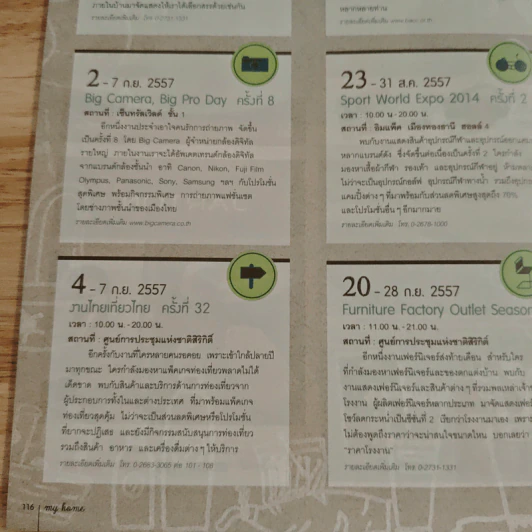 ภายในบ้านมาจัดแสดงให้เราได้เลือกสรรด้วยเช่นกัน
รายละเอียดเพิ่มเติม โทร.
หลากหลายท่าน
รายละเอียดเพิ่มเติม
2 - 7 ก.ย. 2557
Big Camera, Big Pro Day ครั้งที่ 8
สถานที่ : เซ็นทรัลเวิลด์ ชั้น 1
อีกหนึ่งงานประจำเอาใจคนรักการถ่ายภาพ จัดขึ้น
เป็นครั้งที่ 8 โดย Big Camera ผู้จำหน่ายกล้องดิจิทัล
รายใหญ่ ภายในงานเราจะได้อัพเดตเทรนด์กล้องดิจิทัล
จากแบรนด์กล้องชั้นนำ อาทิ Canon, Nikon, Fuji Film
Olympus, Panasonic, Sony, Samsung ฯลฯ กับโปรโมชั่น
สุดพิเศษ พร้อมกิจกรรมพิเศษ การถ่ายภาพแฟชั่นเซต
โดยช่างภาพชั้นนำของเมืองไทย
รายละเอียดเพิ่มเติม www.bigcamera.co.th
23 - 31 ส.ค. 2557
Sport World Expo 2014 ครั้งที่ 2
เวลา : 10.00 น. - 20.00 น.
สถานที่ : อิมแพ็ค เมืองทองธานี ฮอลล์ 4
พบกับงานแสดงสินค้าอุปกรณ์กีฬาและอุปกรณ์ออก
หลากแบรนด์ดัง ซึ่งจัดขึ้นต่อเนื่องเป็นครั้งที่ 2 ใครกำลัง
มองหาเสื้อผ้ากีฬา รองเท้า และอุปกรณ์กีฬาอยู่
ไม่ว่าจะเป็นอุปกรณ์กอล์ฟ อุปกรณ์กีฬาทางน้ำ รวมถึงอุปกรณ์
แคมปิ้งต่าง ๆ ที่มาพร้อมกับส่วนลดพิเศษสูงสุดถึง 70%
และโปรโมชั่นอื่น ๆ อีกมากมาย
รายละเอียดเพิ่มเติม โทร.
4 - 7 ก.ย. 2557
งานไทยเที่ยวไทย ครั้งที่ 32
เวลา : 10.00 น. - 20.00 น.
สถานที่ : ศูนย์การประชุมแห่งชาติสิริกิติ์
อีกครั้งกับงานที่ใครหลายคนรอคอย เพราะเข้าใกล้ปลายปี
มาทุกขณะ ใครกำลังมองหาแพ็คเกจท่องเที่ยวพลาดไม่ได้
เด็ดขาด พบกับสินค้าและบริการด้านการท่องเที่ยวจาก
ผู้ประกอบการทั้งในและต่างประเทศ ที่มาพร้อมแพ็คเกจ
ท่องเที่ยวสุดคุ้ม ไม่ว่าจะเป็นส่วนลดพิเศษหรือโปรโมชั่น
ที่ยากจะปฏิเสธ และยังมีกิจกรรมสนับสนุนการท่องเที่ยว
รวมถึงสินค้า อาหาร และเครื่องดื่มต่างๆ ให้บริการ
รายละเอียดเพิ่มเติม โทร. 0-2683-3065 ต่อ 101 - 108
20 - 28 ก.ย. 2557
Furniture Factory Outlet Season
เวลา : 11.00 น. - 21.00 น.
สถานที่ : ศูนย์การประชุมแห่งชาติสิริกิติ์
อีกหนึ่งงานเฟอร์นิเจอร์ส่งท้ายเดือน สำหรับใคร
ที่กำลังมองหาเฟอร์นิเจอร์และของตกแต่งบ้าน พบกับ
งานแสดงเฟอร์นิเจอร์และสินค้าต่าง ๆ ที่รวมพลเหล่าเจ้าของ
โรงงาน ผู้ผลิตเฟอร์นิเจอร์หลากประเภท มาจัดแสดงเฟอร์
โชว์ลดกระหน่ำเป็นซีซั่นที่ 2 เรียกว่าโรงงานมาเอง เพราะ
ไม่ต้องพูดถึงราคาว่าจะน่าสนใจขนาดไหน บอกเลยว่า
"ราคาโรงงาน"
รายละเอียดเพิ่มเติม โทร. 0-2731-1331
116 | my home